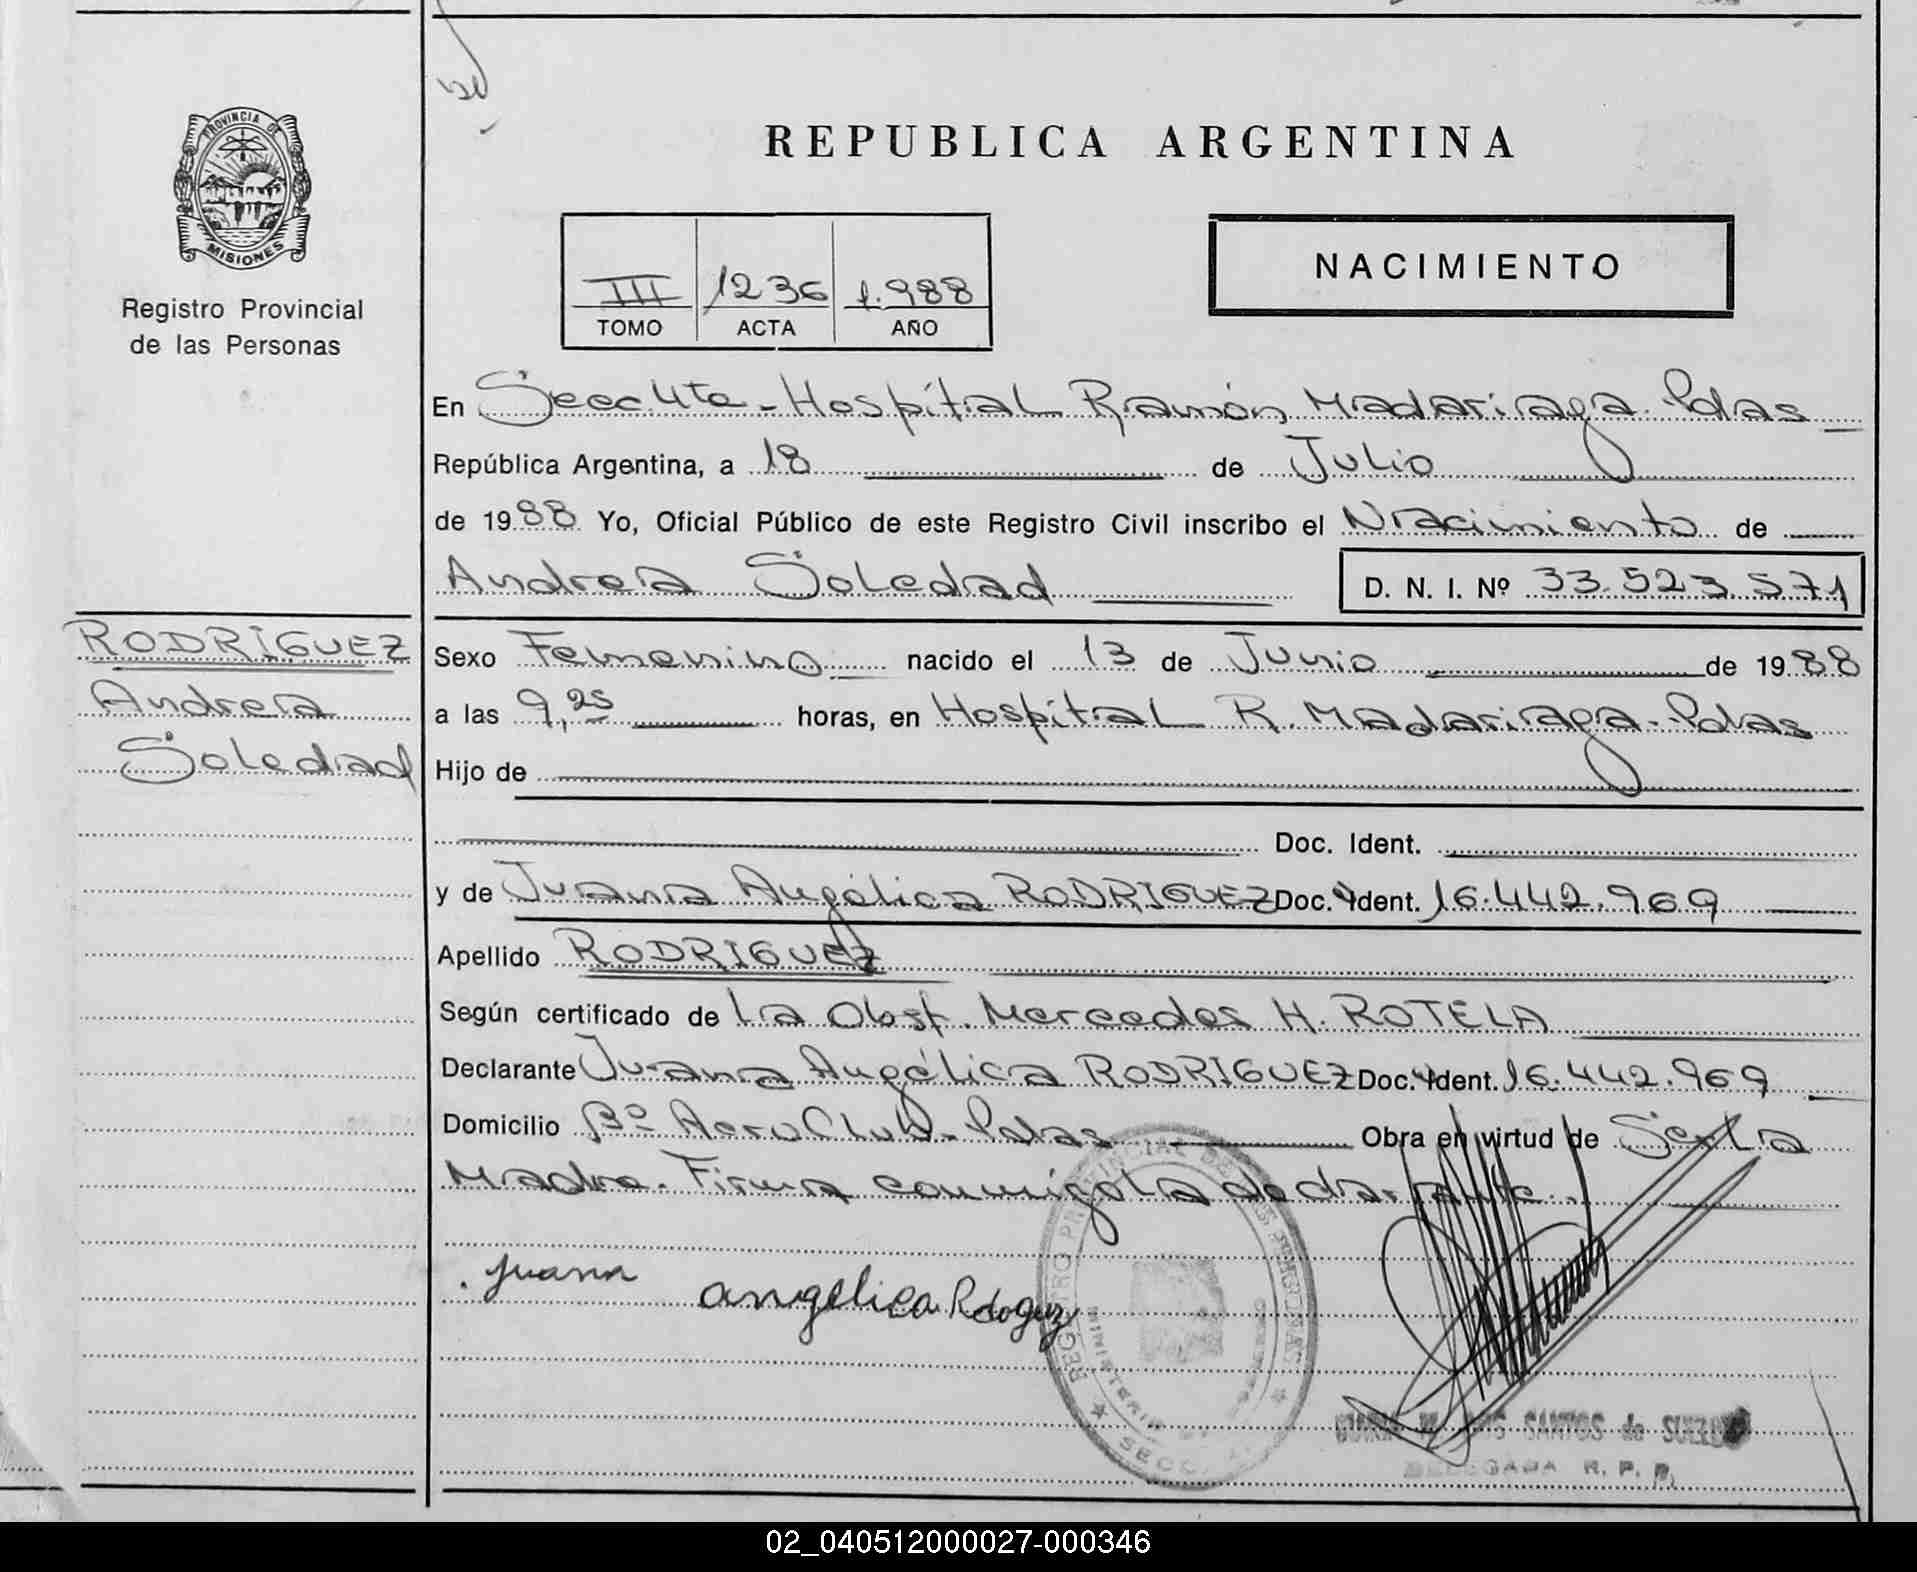 PROVINCIA DE
MISIONES
Registro Provincial
de las Personas
RODRÍGUEZ
Andrea
Soledad
REPUBLICA ARGENTINA
III 1236 1.988
TOMO ACTA AÑO
NACIMIENTO
En Secc 4ta - Hospital Ramón Madariaga - Pdas
República Argentina, a 18 de Julio
de 1988 Yo, Oficial Público de este Registro Civil inscribo el Nacimiento de
Andrea Soledad D. N. I. Nº 33.523.571
Sexo Femenino nacido el 13 de Junio de 1988
a las 9,25 horas, en Hospital R. Madariaga - Pdas
Hijo de
Doc. Ident.
y de Juana Angélica RODRIGUEZ Doc. Ident. 16.442.969
Apellido RODRIGUEZ
Según certificado de La Obst. Mercedes H. ROTELA
Declarante Juana Angélica RODRIGUEZ Doc. Ident. 16.442.969
Domicilio Bº Aero Club - Pdas Obra en virtud de Ser La
Madre. Firma conmigo la declarante.
Juana angelica
REGISTRO PROVINCIAL DE LAS PERSONAS
MINISTERIO
SECC.
SANTOS de
DELEGADA R. P. P.
02_040512000027-000346